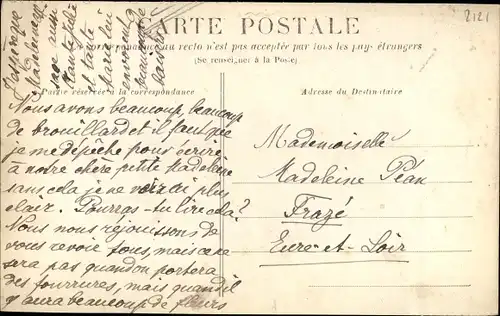 CARTE POSTALE
2121
La correspondance au recto n'est pas acceptée par tous les pays étrangers
(Se renseigner à la Poste)
Partie réservée à la correspondance
Adresse du Destinataire
Nous avons beaucoup, beaucoup
de brouillard et il faut que
je me dépêche pour écrire
à notre chère petite Madeleine
sans cela je ne verrai plus
clair. Pourras-tu lire cela?
Nous nous réjouissons de
vous revoir tous, mais ce ne
sera pas quand on portera
des fourrures, mais quand il
y aura beaucoup de fleurs
J'espère que
Mademoiselle
aussi
tante
et tante
Marie lui
envoient
beaucoup de
baisers
Mademoiselle
Madeleine Péan
Frazé
Eure-et-Loir